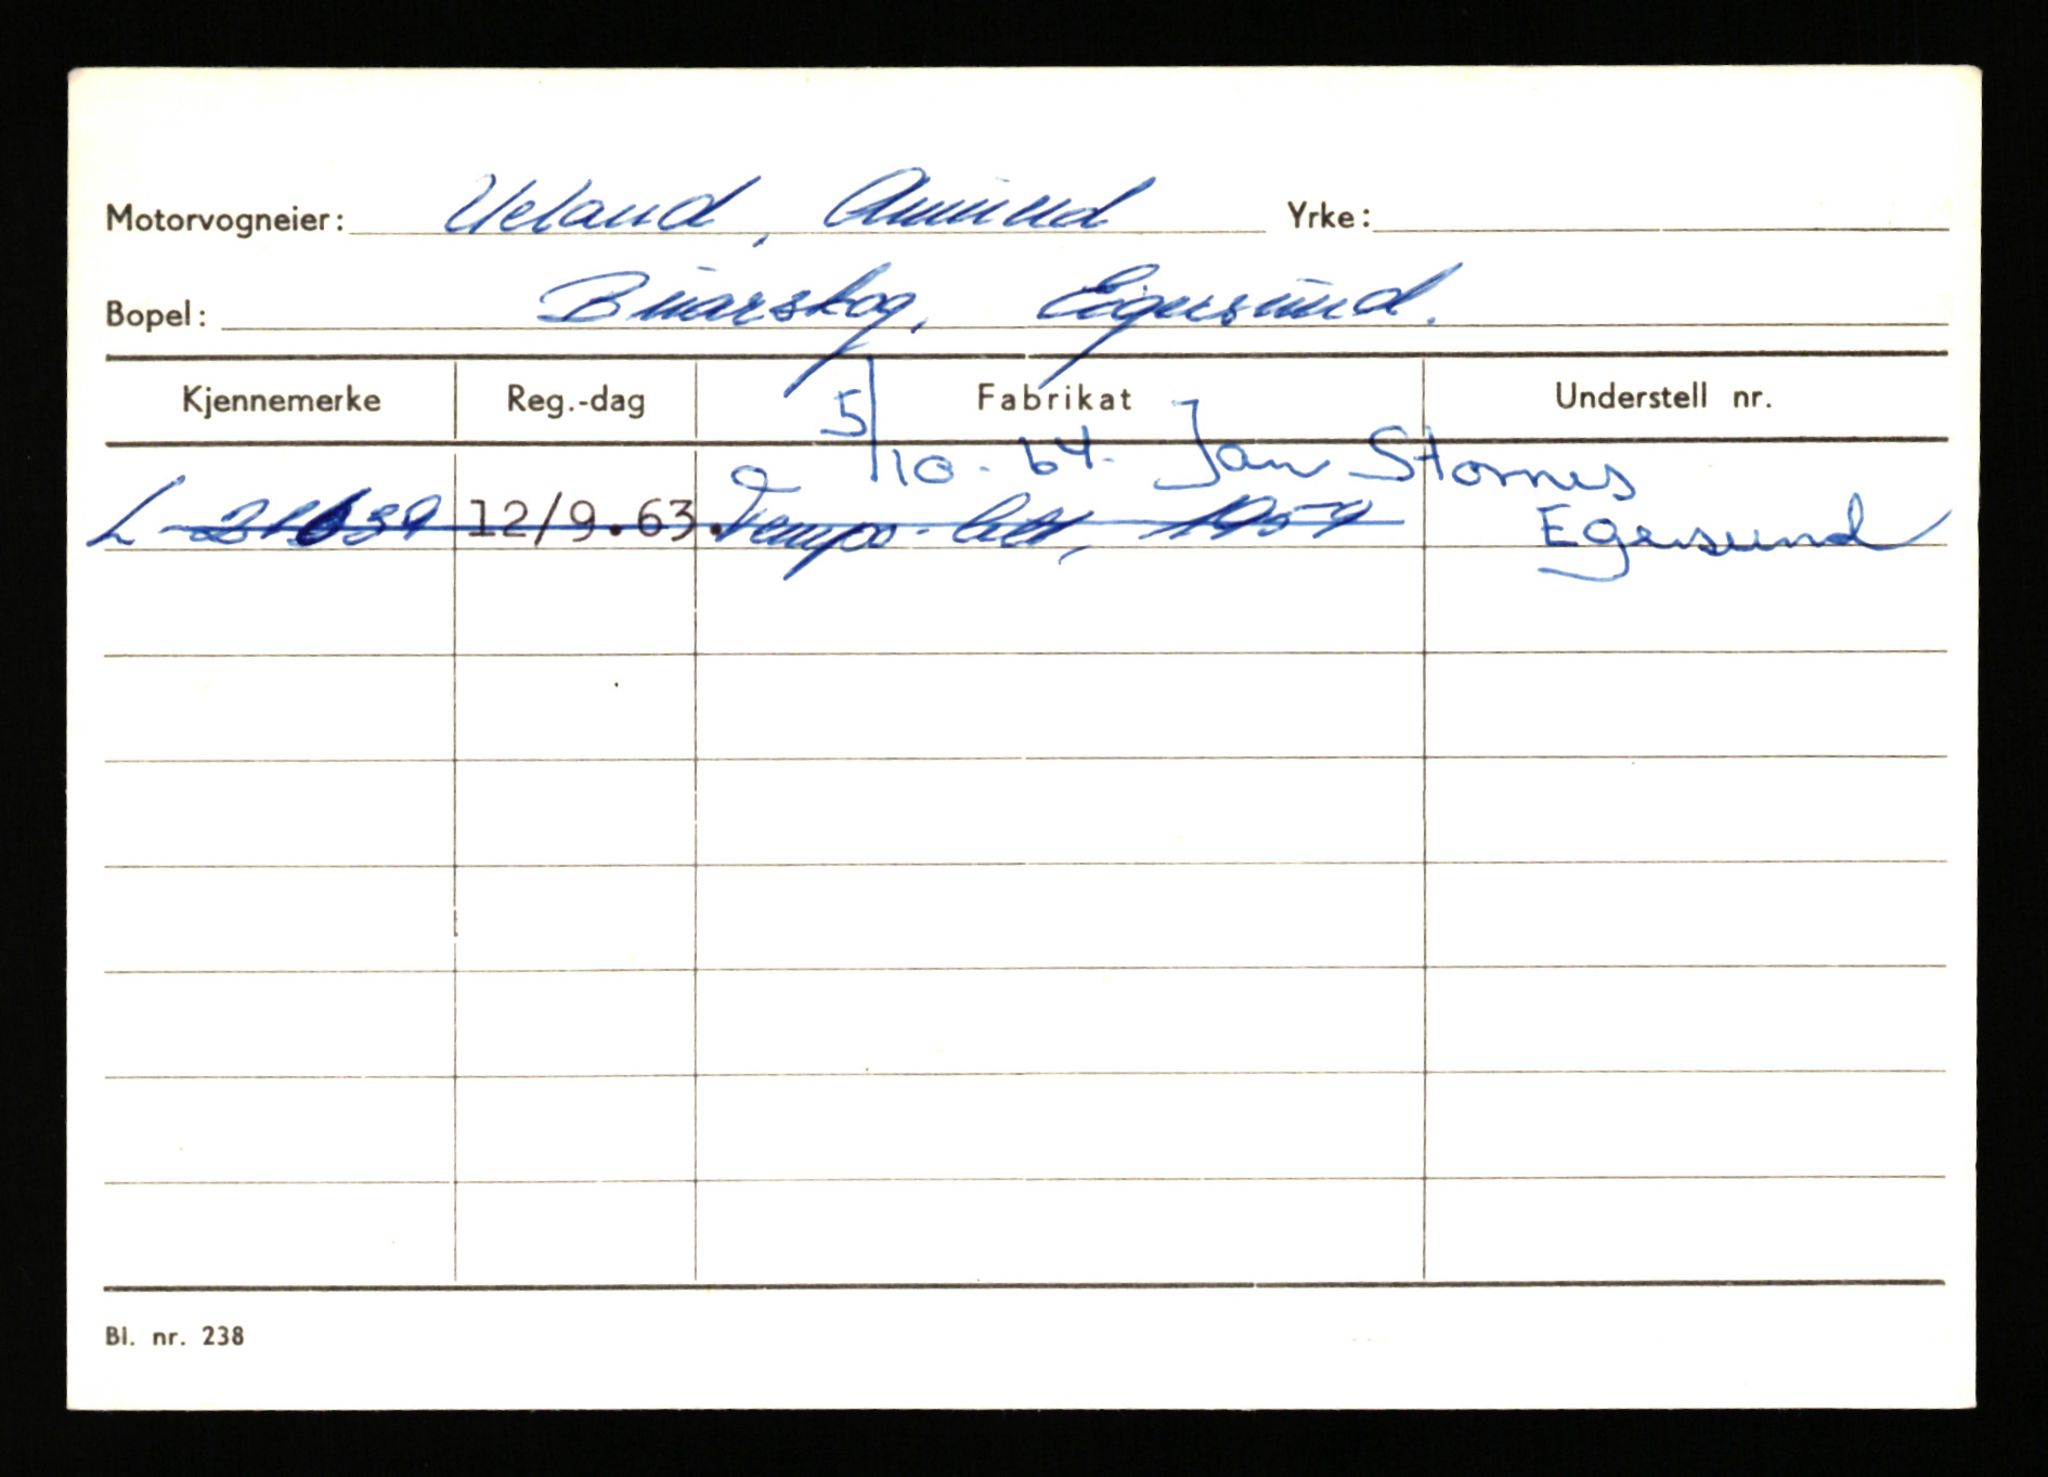 Motorvogneier: Ueland, Amund Yrke:
Bopel: Buarskog, Eigersund.
Kjennemerke Reg.-dag Fabrikat Understell nr.
5/10-64. Jan Stornes
L-21639 12/9.63. Tempo lett, 1959 Egersund
Bl. nr. 238